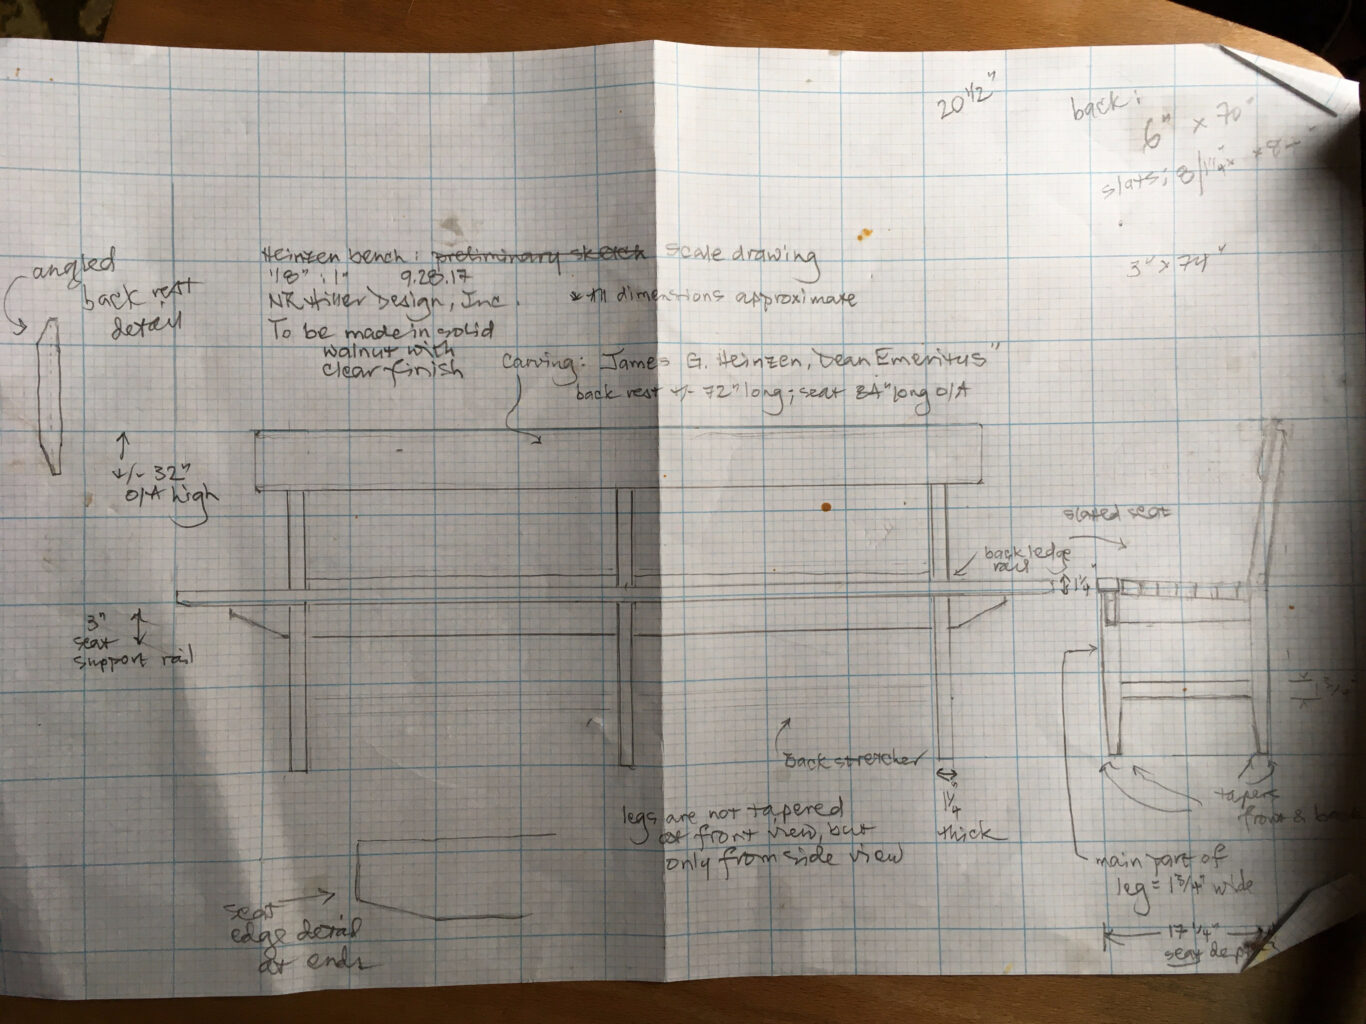 20 1/2"
back:
6" x 70"
slats: 8/1 1/4" x
3" x 74"
angled
back rest
detail
Heinzen bench: preliminary sketch scale drawing
1/8" : 1" 9.28.17
NR Hiller Design, Inc. * All dimensions approximate
To be made in solid
walnut with
clear finish
Carving: James G. Heinzen, Dean Emeritus"
back rest +/- 72" long; seat 84" long O/A
+/- 32"
O/A high
slated seat
back ledge
rail
1 1/4"
3"
seat
support rail
1 3/4"
back stretcher
1 1/4"
thick
legs are not tapered
at front view, but
only from side view
tapers
front & back
main part of
leg = 1 3/4" wide
seat
edge detail
at ends
17 1/4"
seat depth